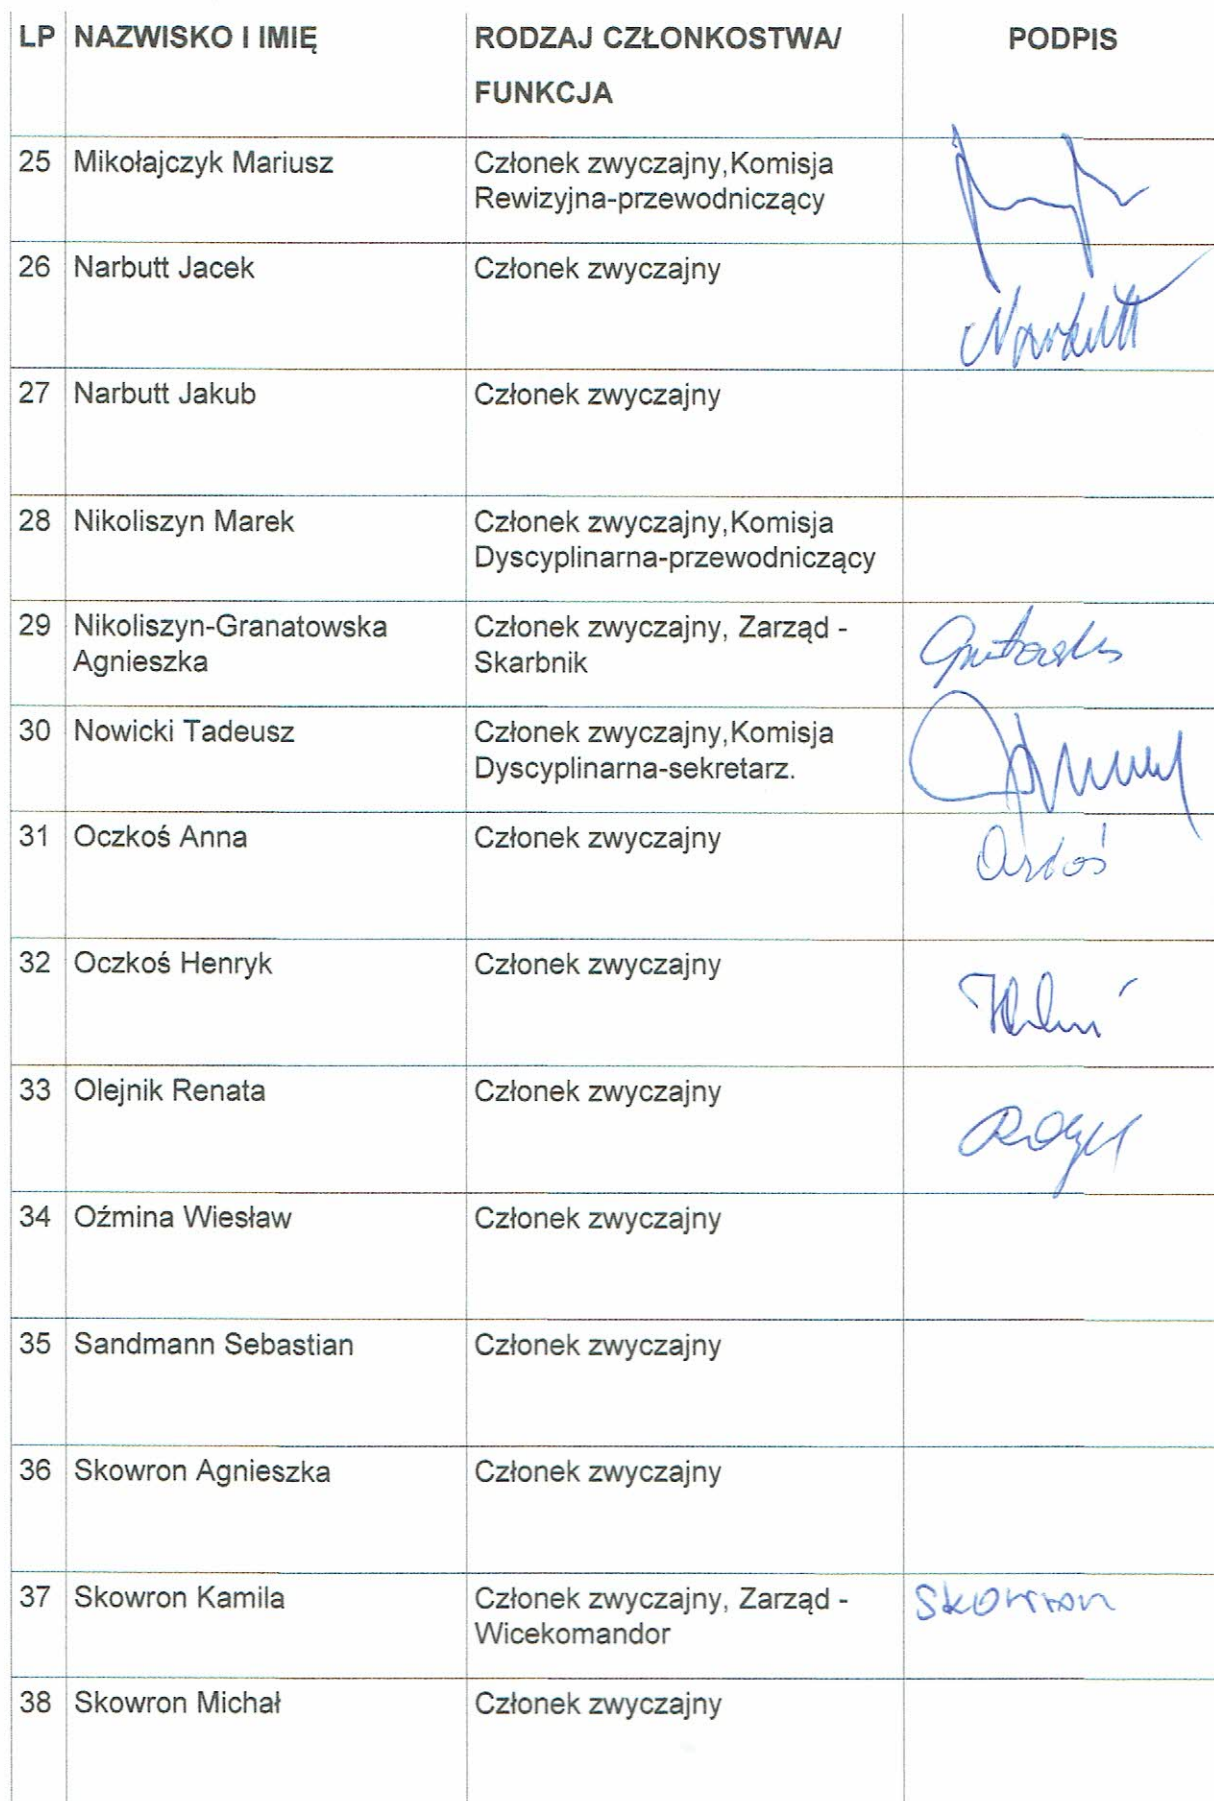 LP NAZWISKO I IMIĘ RODZAJ CZŁONKOSTWA/ PODPIS
FUNKCJA
25 Mikołajczyk Mariusz Członek zwyczajny,Komisja
Rewizyjna-przewodniczący
26 Narbutt Jacek Członek zwyczajny
Narbutt
27 Narbutt Jakub Członek zwyczajny
28 Nikoliszyn Marek Członek zwyczajny,Komisja
Dyscyplinarna-przewodniczący
29 Nikoliszyn-Granatowska Członek zwyczajny, Zarząd -
Agnieszka Skarbnik
30 Nowicki Tadeusz Członek zwyczajny,Komisja
Dyscyplinarna-sekretarz.
31 Oczkoś Anna Członek zwyczajny
32 Oczkoś Henryk Członek zwyczajny
33 Olejnik Renata Członek zwyczajny
34 Oźmina Wiesław Członek zwyczajny
35 Sandmann Sebastian Członek zwyczajny
36 Skowron Agnieszka Członek zwyczajny
37 Skowron Kamila Członek zwyczajny, Zarząd - Skowron
Wicekomandor
38 Skowron Michał Członek zwyczajny